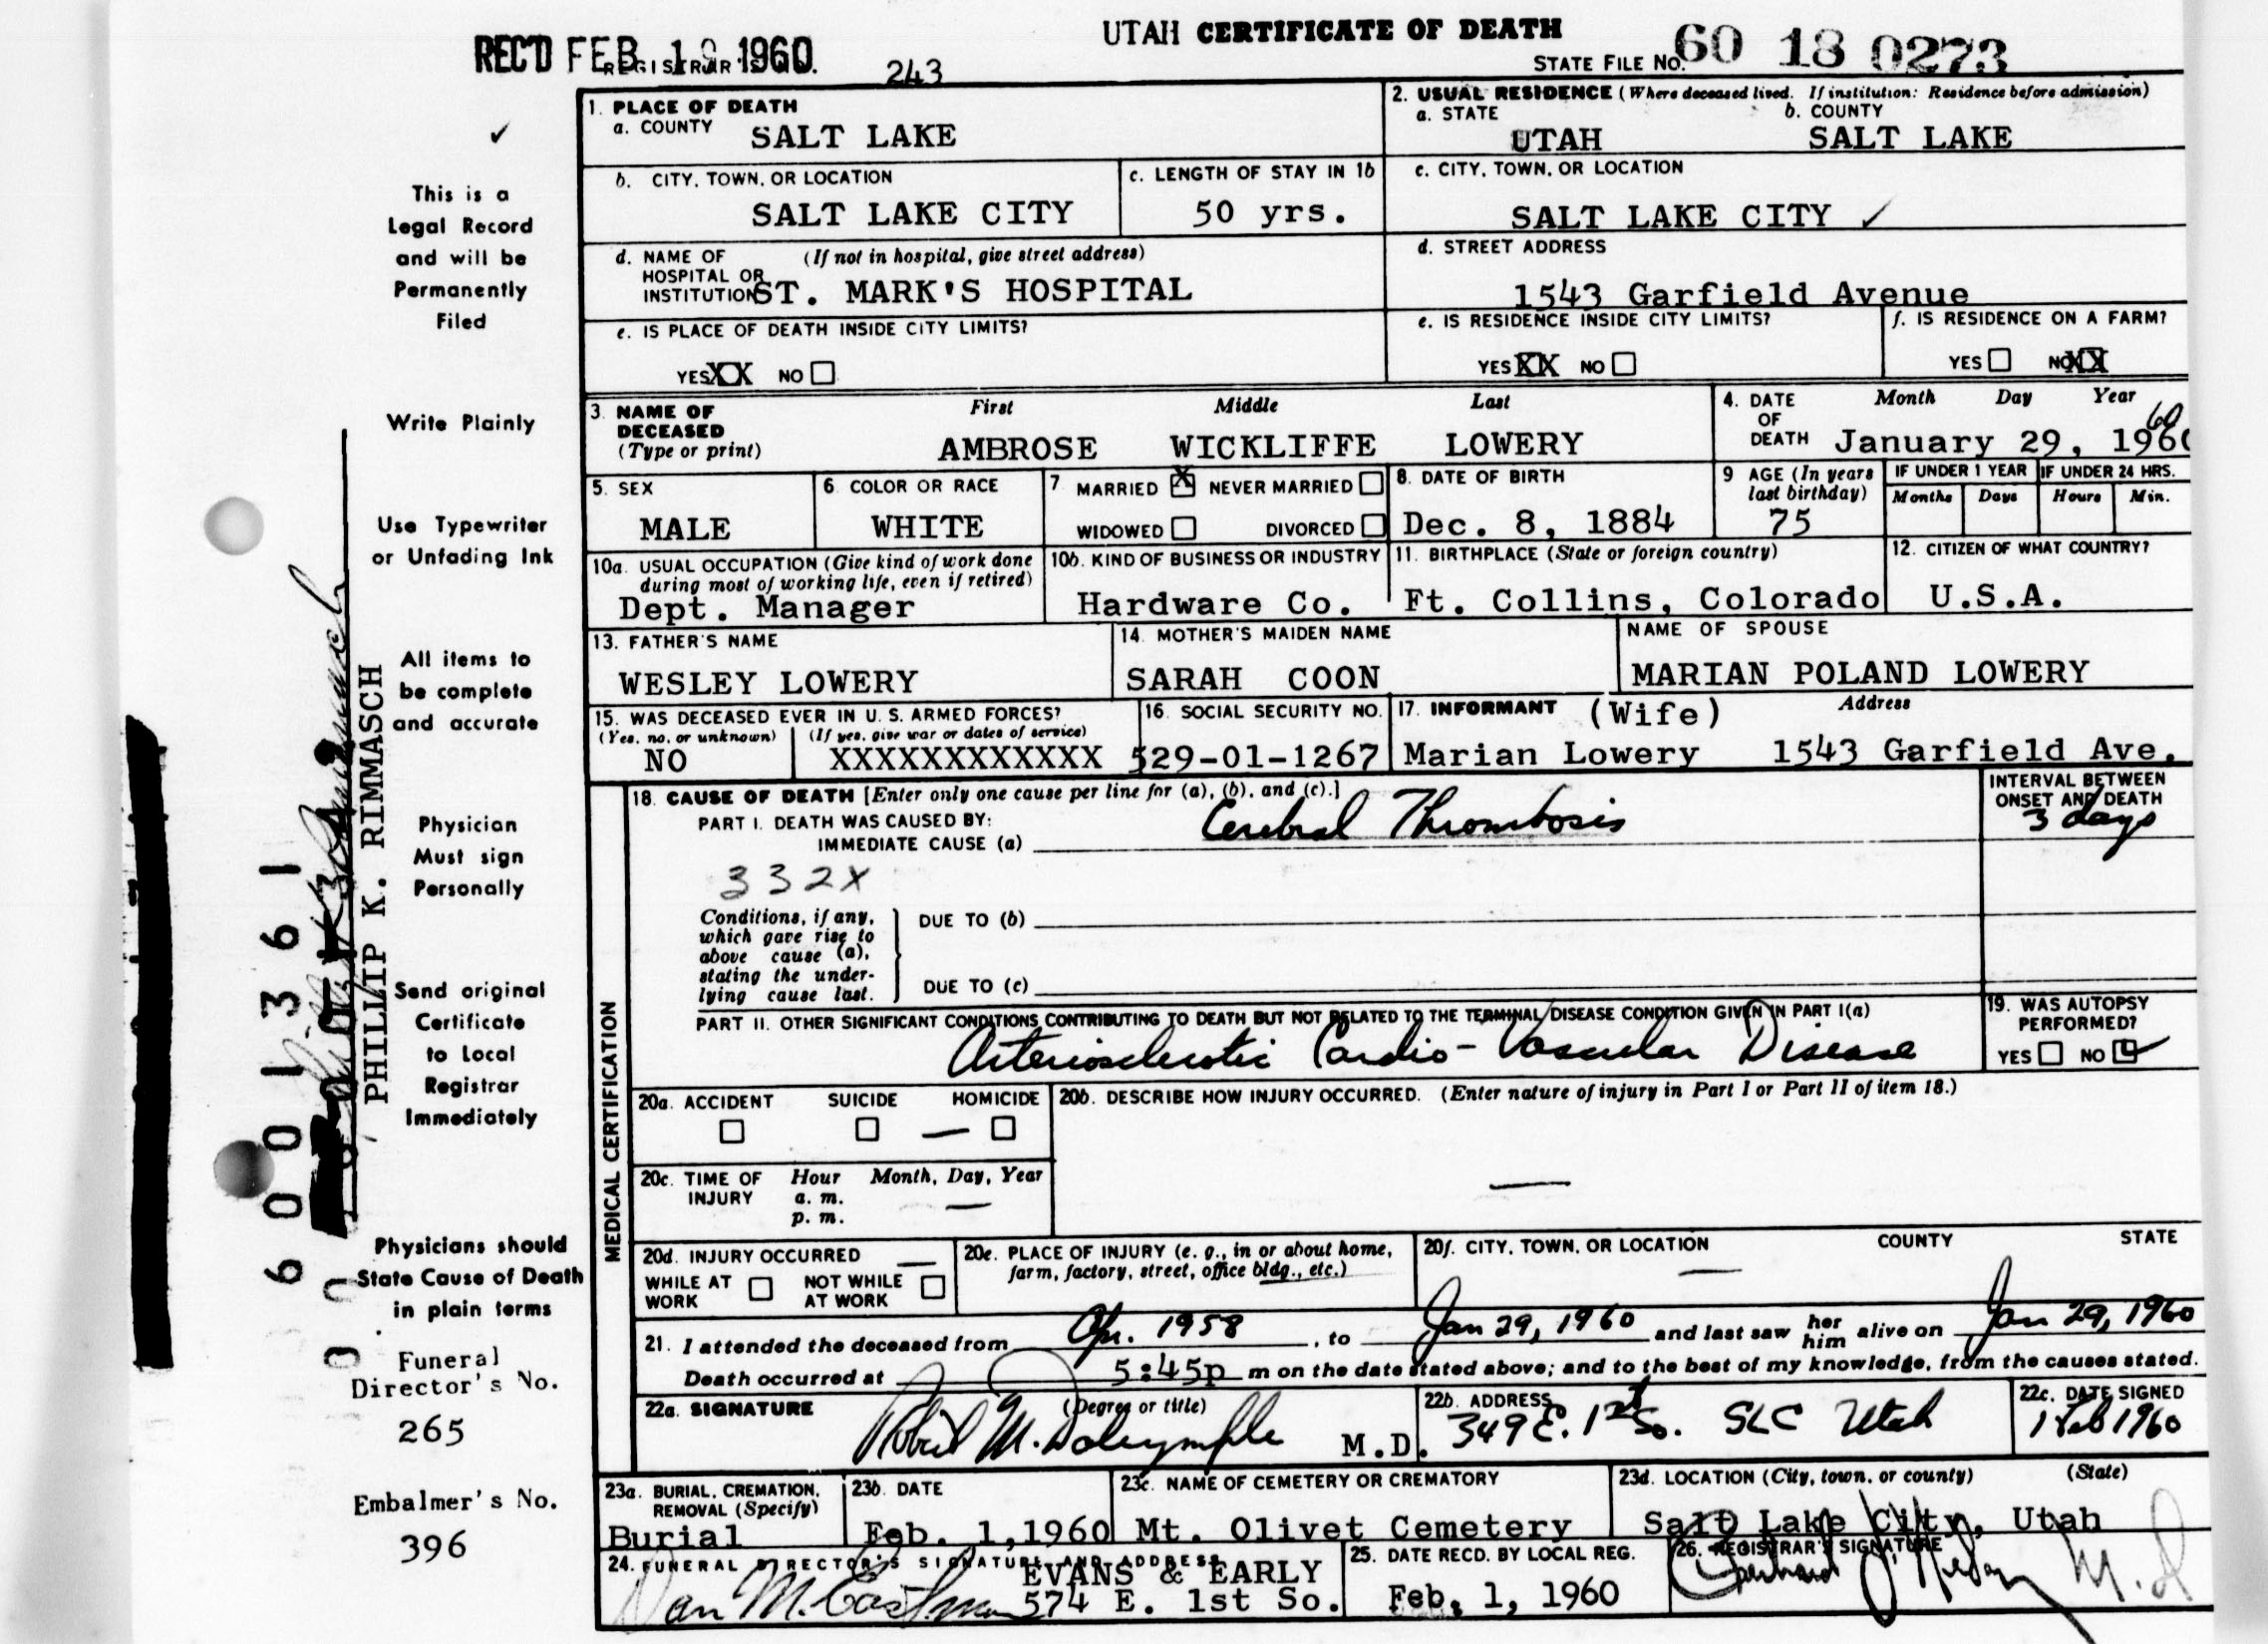 UTAH CERTIFICATE OF DEATH
REC'D FEB 1960
REGISTRAR'S NO. 243
STATE FILE NO. 60 18 0273
1. PLACE OF DEATH
a. COUNTY SALT LAKE
b. CITY, TOWN, OR LOCATION
SALT LAKE CITY
c. LENGTH OF STAY IN 1b
50 yrs.
d. NAME OF HOSPITAL OR INSTITUTION (If not in hospital, give street address)
ST. MARK'S HOSPITAL
e. IS PLACE OF DEATH INSIDE CITY LIMITS?
YES XX NO
2. USUAL RESIDENCE (Where deceased lived. If institution: Residence before admission)
a. STATE UTAH
b. COUNTY SALT LAKE
c. CITY, TOWN, OR LOCATION
SALT LAKE CITY ✓
d. STREET ADDRESS
1543 Garfield Avenue
e. IS RESIDENCE INSIDE CITY LIMITS?
YES XX NO
f. IS RESIDENCE ON A FARM?
YES NO XX
3. NAME OF DECEASED (Type or print)
First Middle Last
AMBROSE WICKLIFFE LOWERY
4. DATE OF DEATH Month Day Year
60
January 29, 1960
5. SEX
MALE
6. COLOR OR RACE
WHITE
7 MARRIED X NEVER MARRIED
WIDOWED DIVORCED
8. DATE OF BIRTH
Dec. 8, 1884
9 AGE (In years last birthday)
75
IF UNDER 1 YEAR IF UNDER 24 HRS.
Months Days Hours Min.
10a. USUAL OCCUPATION (Give kind of work done during most of working life, even if retired)
Dept. Manager
10b. KIND OF BUSINESS OR INDUSTRY
Hardware Co.
11. BIRTHPLACE (State or foreign country)
Ft. Collins, Colorado
12. CITIZEN OF WHAT COUNTRY?
U.S.A.
13. FATHER'S NAME
WESLEY LOWERY
14. MOTHER'S MAIDEN NAME
SARAH COON
NAME OF SPOUSE
MARIAN POLAND LOWERY
15. WAS DECEASED EVER IN U. S. ARMED FORCES?
(Yes, no, or unknown) (If yes, give war or dates of service)
NO XXXXXXXXXXXX
16. SOCIAL SECURITY NO.
529-01-1267
17. INFORMANT (Wife) Address
Marian Lowery 1543 Garfield Ave.
MEDICAL CERTIFICATION
18. CAUSE OF DEATH [Enter only one cause per line for (a), (b), and (c).]
PART I. DEATH WAS CAUSED BY:
IMMEDIATE CAUSE (a) Cerebral Thrombosis
INTERVAL BETWEEN ONSET AND DEATH
3 days
332X
Conditions, if any, which gave rise to above cause (a), stating the underlying cause last.
DUE TO (b)
DUE TO (c)
PART II. OTHER SIGNIFICANT CONDITIONS CONTRIBUTING TO DEATH BUT NOT RELATED TO THE TERMINAL DISEASE CONDITION GIVEN IN PART I(a)
Arteriosclerotic Cardio-Vascular Disease
19. WAS AUTOPSY PERFORMED?
YES NO ✓
20a. ACCIDENT SUICIDE HOMICIDE
20b. DESCRIBE HOW INJURY OCCURRED. (Enter nature of injury in Part I or Part II of item 18.)
20c. TIME OF INJURY Hour Month, Day, Year
a. m.
p. m.
20d. INJURY OCCURRED
WHILE AT WORK NOT WHILE AT WORK
20e. PLACE OF INJURY (e. g., in or about home, farm, factory, street, office bldg., etc.)
20f. CITY, TOWN, OR LOCATION COUNTY STATE
21. I attended the deceased from Apr. 1958, to Jan 29, 1960 and last saw her him alive on Jan 29, 1960
Death occurred at 5:45p m on the date stated above; and to the best of my knowledge, from the causes stated.
22a. SIGNATURE (Degree or title)
Robert M. Dalrymple M.D.
22b. ADDRESS
349 E. 1st So. SLC Utah
22c. DATE SIGNED
1 Feb 1960
23a. BURIAL, CREMATION, REMOVAL (Specify)
Burial
23b. DATE
Feb. 1, 1960
23c. NAME OF CEMETERY OR CREMATORY
Mt. Olivet Cemetery
23d. LOCATION (City, town, or county) (State)
Salt Lake City, Utah
24. FUNERAL DIRECTOR'S SIGNATURE AND ADDRESS
Dan M. Eastman
EVANS & EARLY
574 E. 1st So.
25. DATE RECD. BY LOCAL REG.
Feb. 1, 1960
26. REGISTRAR'S SIGNATURE
M.D
✓
This is a
Legal Record
and will be
Permanently
Filed
Write Plainly
Use Typewriter
or Unfading Ink
All items to
be complete
and accurate
Physician
Must sign
Personally
Send original
Certificate
to Local
Registrar
Immediately
Physicians should
State Cause of Death
in plain terms
Funeral
Director's No.
265
Embalmer's No.
396
PHILLIP K. RIMMASCH
6001361